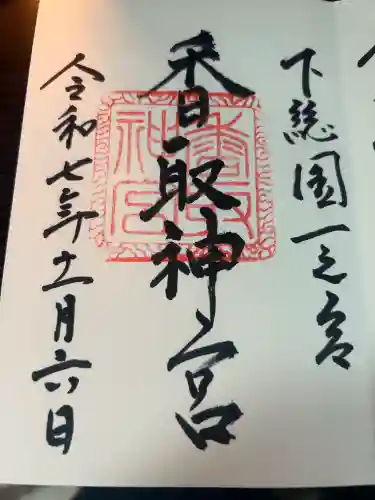 下総國一之宮
香取神宮
令和七年十一月六日
香取神宮